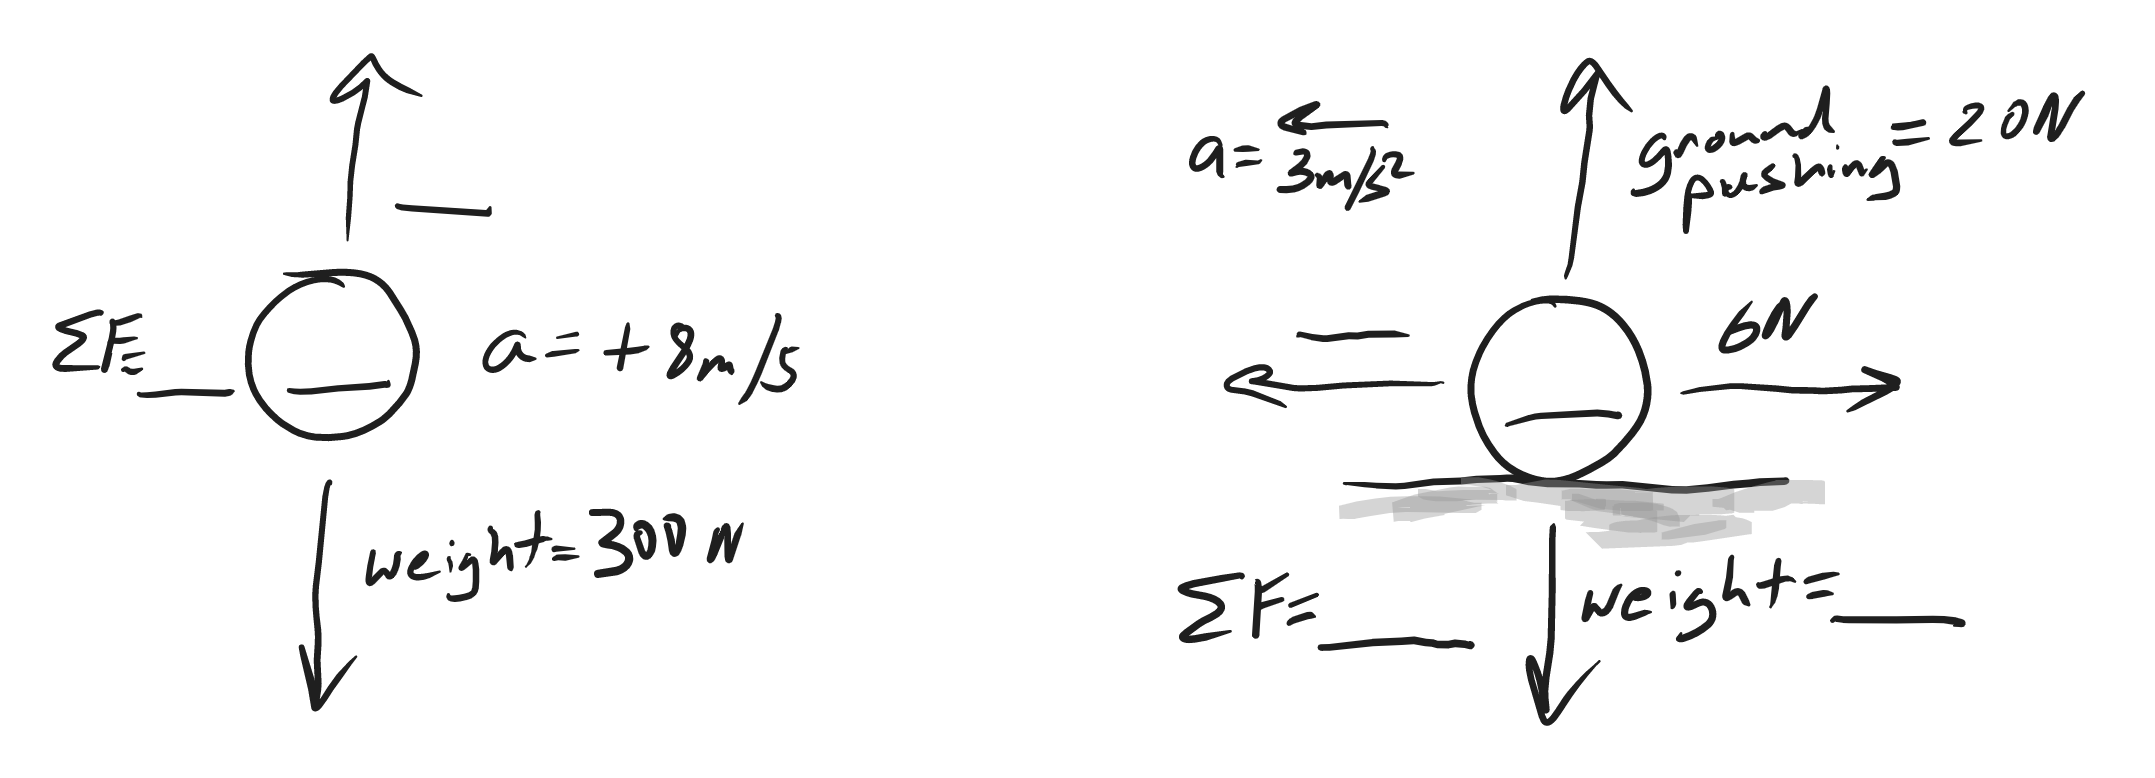 ΣF=___
___
a=+8m/s
weight=300N
a=3m/s²
ground pushing=20N
___
6N
___
ΣF=___
weight=___